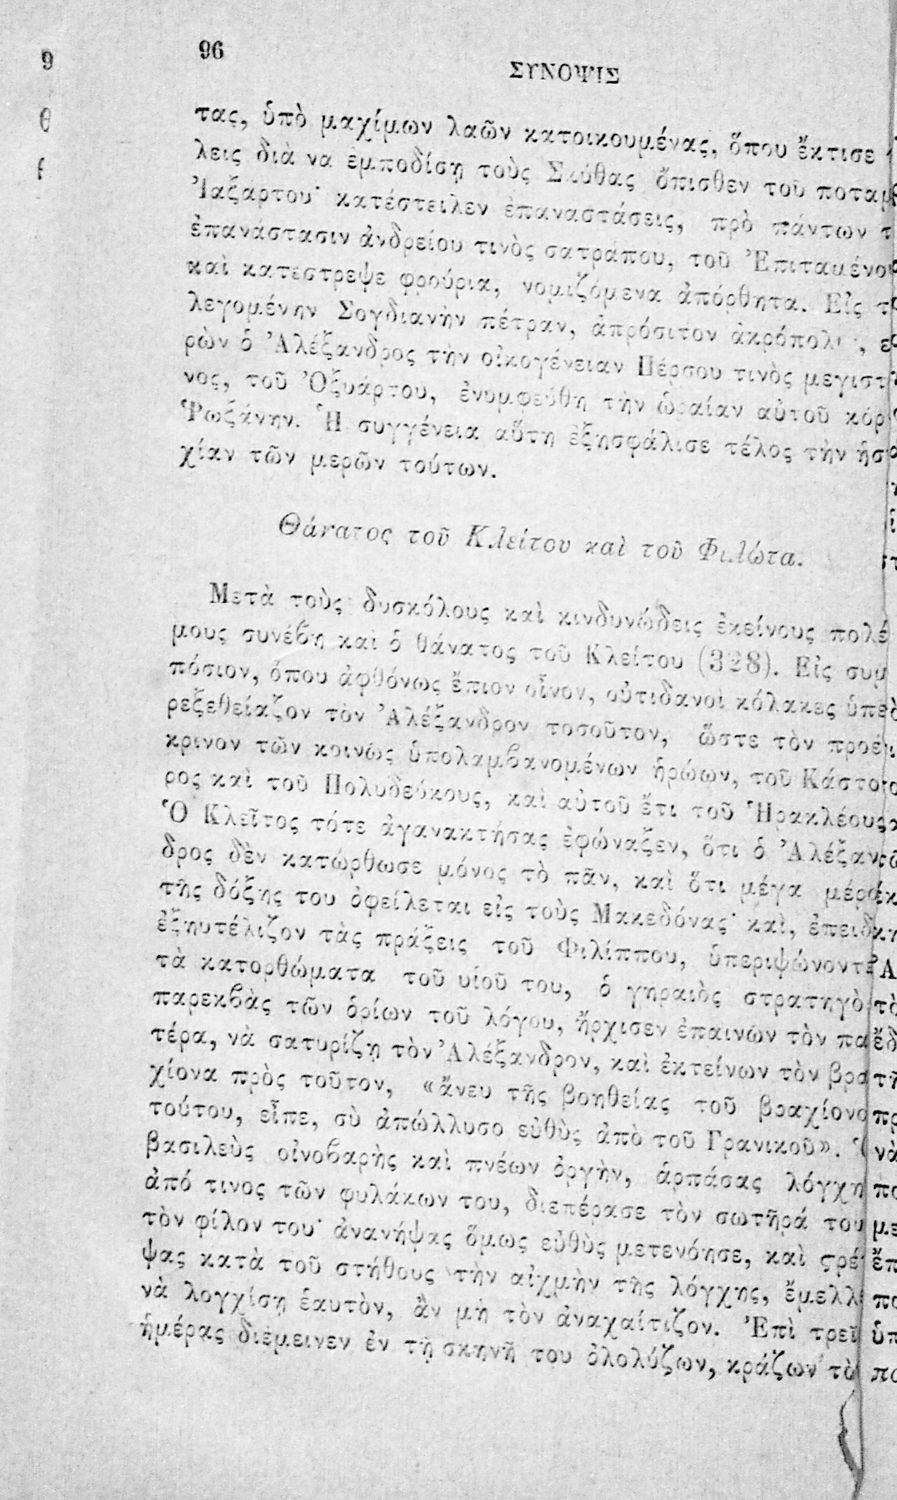 96
ΣΥΝΟΨΙΣ
τας, ὑπὸ μαχίμων λαῶν κατοικουμένας, ὅπου ἔκτισε
λεις διὰ να ἐμποδίσῃ τοὺς Σκύθας ὄπισθεν τοῦ ποταμ
Ἰαξάρτου· κατέστειλεν ἐπαναστάσεις, πρὸ πάντων τ
ἐπανάστασιν ἀνδρείου τινὸς σατράπου, τοῦ Ἐπιταμένου
καὶ κατέστρεψε φρούρια, νομιζόμενα ἀπόρθητα. Εἰς τ
λεγομένην Σογδιανὴν πέτραν, ἀπρόσιτον ἀκρόπολι , ε
ρὼν ὁ Ἀλέξανδρος τὴν οἰκογένειαν Πέρσου τινὸς μεγιστ
νος, τοῦ Ὀξυάρτου, ἐνυμφεύθη τὴν ὡραίαν αὐτοῦ κόρ
Ῥωξάνην. Ἡ συγγένεια αὕτη ἐξησφάλισε τέλος τὴν ἡσ
χίαν τῶν μερῶν τούτων.
Θάνατος τοῦ Κλείτου καὶ τοῦ Φιλώτα.
Μετὰ τοὺς δυσκόλους καὶ κινδυνώδεις ἐκείνους πολέ
μους συνέβη καὶ ὁ θάνατος τοῦ Κλείτου (328). Εἰς συμ
πόσιον, ὅπου ἀφθόνως ἔπιον οἶνον, οὐτιδανοὶ κόλακες ὑπε
ρεξεθείαζον τὸν Ἀλέξανδρον τοσοῦτον, ὥστε τὸν προέ
κρινον τῶν κοινῶς ὑπολαμβανομένων ἡρώων, τοῦ Κάστο
ρος καὶ τοῦ Πολυδεύκους, καὶ αὐτοῦ ἔτι τοῦ Ἡρακλέους
Ὁ Κλεῖτος τότε ἀγανακτήσας ἐφώναξεν, ὅτι ὁ Ἀλέξαν
δρος δὲν κατώρθωσε μόνος τὸ πᾶν, καὶ ὅτι μέγα μέρο
τῆς δόξης του ὀφείλεται εἰς τοὺς Μακεδόνας· καὶ, ἐπειδ
ἐξηυτέλιζον τὰς πράξεις τοῦ Φιλίππου, ὑπεριψώνοντε
τὰ κατορθώματα τοῦ υἱοῦ του, ὁ γηραιὸς στρατηγὸ
παρεκβὰς τῶν ὁρίων τοῦ λόγου, ἤρχισεν ἐπαινῶν τὸν πα
τέρα, νὰ σατυρίζῃ τὸν Ἀλέξανδρον, καὶ ἐκτείνων τὸν βρα
χίονα πρὸς τοῦτον, «ἄνευ τῆς βοηθείας τοῦ βραχίονο
τούτου, εἶπε, σὺ ἀπώλλυσο εὐθὺς ἀπὸ τοῦ Γρανικοῦ». Ὁ
βασιλεὺς οἰνοβαρὴς καὶ πνέων ὀργὴν, ἁρπάσας λόγχη
ἀπό τινος τῶν φυλάκων του, διεπέρασε τὸν σωτῆρά του
τὸν φίλον του· ἀνανήψας ὅμως εὐθὺς μετενόησε, καὶ στρέ
ψας κατὰ τοῦ στήθους τὴν αἰχμὴν τῆς λόγχης, ἔμελλ
νὰ λογχίσῃ ἑαυτὸν, ἂν μὴ τὸν ἀναχαίτιζον. Ἐπὶ τρεῖ
ἡμέρας διέμεινεν ἐν τῇ σκηνῇ του ὀλολύζων, κράζων τὸ